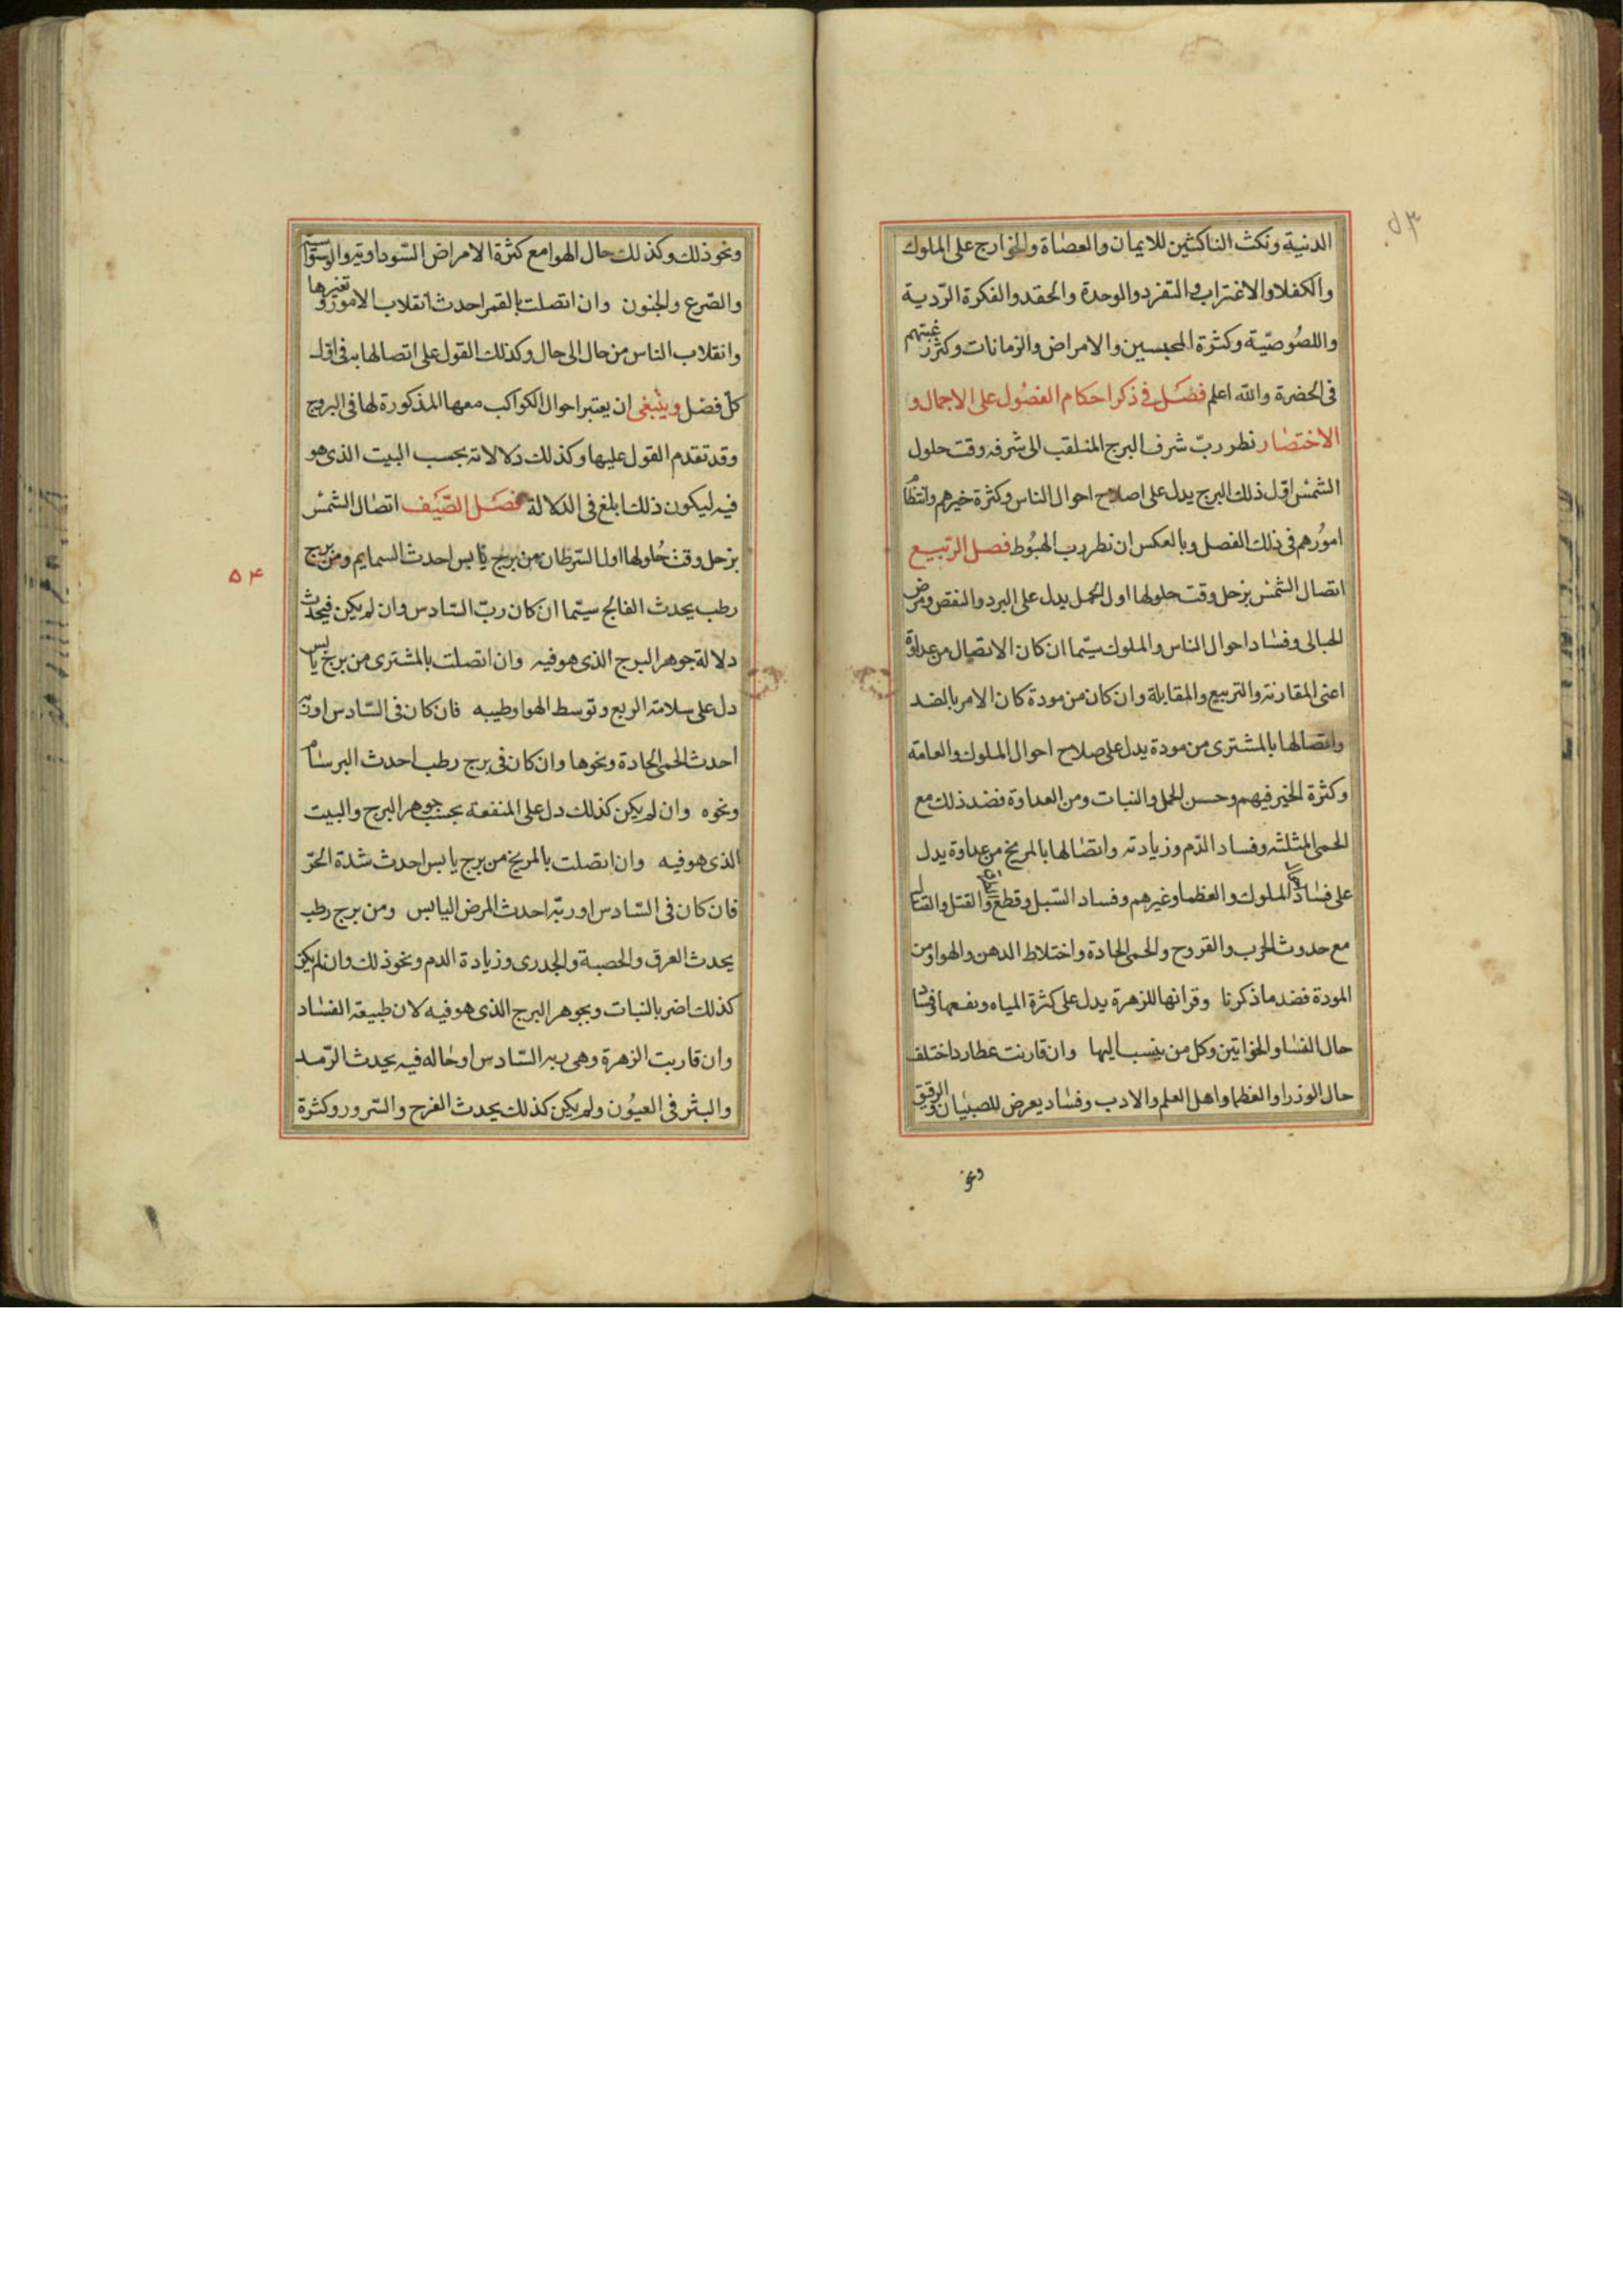 ٥٣
الدنية ونكث الناكثين للايمان والعصاة والخوارج على الملوك
والكفلا والاغتراب والتفرد والوحدة والحقد والفكرة الردية
واللصوصية وكثرة المحبسين والامراض والزمانات وكثرة غيبتهم
فى الحضرة والله اعلم فصل في ذكر احكام الفصول على الاجمال و
الاختصار نظر رب شرف البرج المنلقب الى شرفه وقت حلول
الشمس اول ذلك البرج يدل على اصلاح احوال الناس وكثرة خيرهم وانتظام
امورهم فى ذلك الفصل وبالعكس ان نظر رب الهبوط فصل الربيع
اتصال الشمس بزحل وقت حلولها اول الحمل يدل على البرد والنقص ومرض
الحبالى وفساد احوال الناس والملوك سيما ان كان الاتصال من عداوة
اعنى المقارنة والتربيع والمقابلة وان كان من مودة كان الامر بالضد
واتصالها بالمشترى من مودة يدل على صلاح احوال الملوك والعامة
وكثرة الخير فيهم وحسن الحمل والنبات ومن العداوة فضد ذلك مع
الحمى المثلثه وفساد الدم وزيادته واتصالها بالمريخ من عداوة يدل
على فساد الملوك والعظما وغيرهم وفساد السبل وقطع والقتل والقتال
مع حدوث الجرب والقروح والحمى الحادة واختلاط الدهن والهوا ومن
المودة فضد ما ذكرنا وقرانها للزهرة يدل على كثرة المياه ونفعها وفساد
حال النسا والخواتين وكل من ينسب اليها وان قارنت عطارد اختلف
حال الوزرا والعظما واهل العلم والادب وفساد يعرض للصبيان والرقيق
ونحو
ونحو ذلك وكذلك حال الهوا مع كثرة الامراض السوداوية والوسواسية
والصرع والجنون وان اتصلت بالقمر احدث انقلاب الامور وتغيرها
وانقلاب الناس من حال الى حال وكذلك القول على اتصالها به فى اول
كل فصل وينبغى ان يعتبر احوال الكواكب معها المذكورة لها فى البروج
وقد تقدم القول عليها وكذلك دلالاته بحسب البيت الذى هو
فيه ليكون ذلك ابلغ فى الدلالة فصل الصيف اتصال الشمس
بزحل وقت حلولها اول السرطان من برج يابس احدث السمايم ومن برج
رطب يحدث الفالج سيما ان كان رب السادس وان لم يكن فيحدث
دلالة جوهر البرج الذى هو فيه وان اتصلت بالمشترى من برج يابس
دل على سلامة الربع وتوسط الهوا وطيبه فان كان فى السادس او ربه
احدث الحمى الحادة ونحوها وان كان فى برج رطب احدث البرسام
ونحوه وان لم يكن كذلك دل على المنفعة بحسب جوهر البرج والبيت
الذى هو فيه وان اتصلت بالمريخ من برج يابس احدث شدة الحر
فان كان فى السادس او ربه احدث المرض اليابس ومن برج رطب
يحدث العرق والحصبة والجدرى وزيادة الدم ونحو ذلك وان لم يكن
كذلك اضر بالنبات وبجوهر البرج الذى هو فيه لان طبيعة الفساد
وان قاربت الزهرة وهى ربه السادس او حاله فيه يحدث الرمد
والبثر فى العيون ولم يكن كذلك يحدث الفرح والسرور وكثرة
٥۴